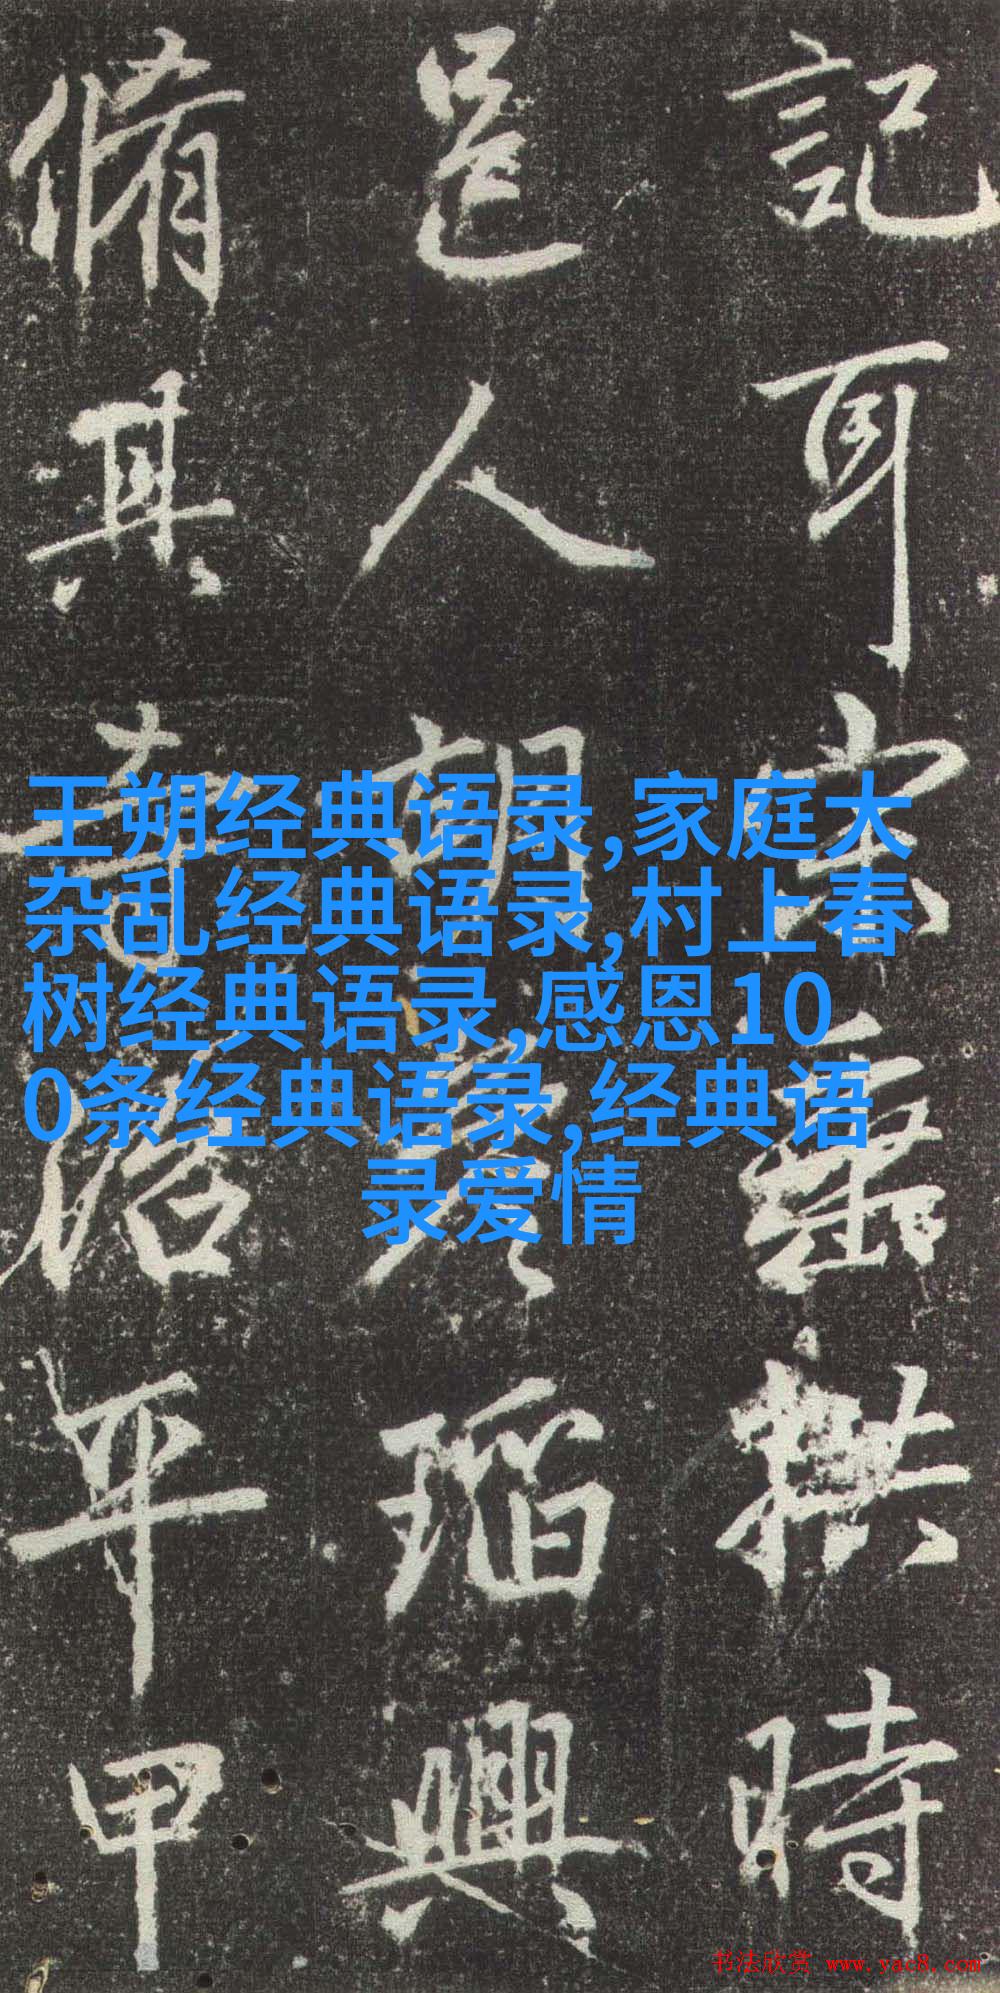 記耳宗無拱時
邑人胡瑫興
脩其寺治平甲
王朔经典语录,家庭大
杂乱经典语录,村上春
树经典语录,感恩10
0条经典语录,经典语
录爱情
书法欣赏 www.yac8.com